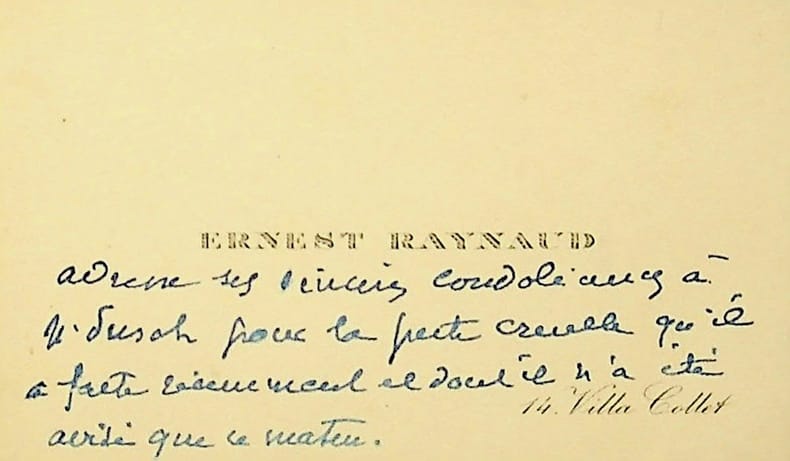 ERNEST RAYNAUD
adresse ses sincères condoléances à
pour la perte cruelle qu'il
a faite récemment et dont il n'a été
14, Villa Collet
avisé que ce matin.